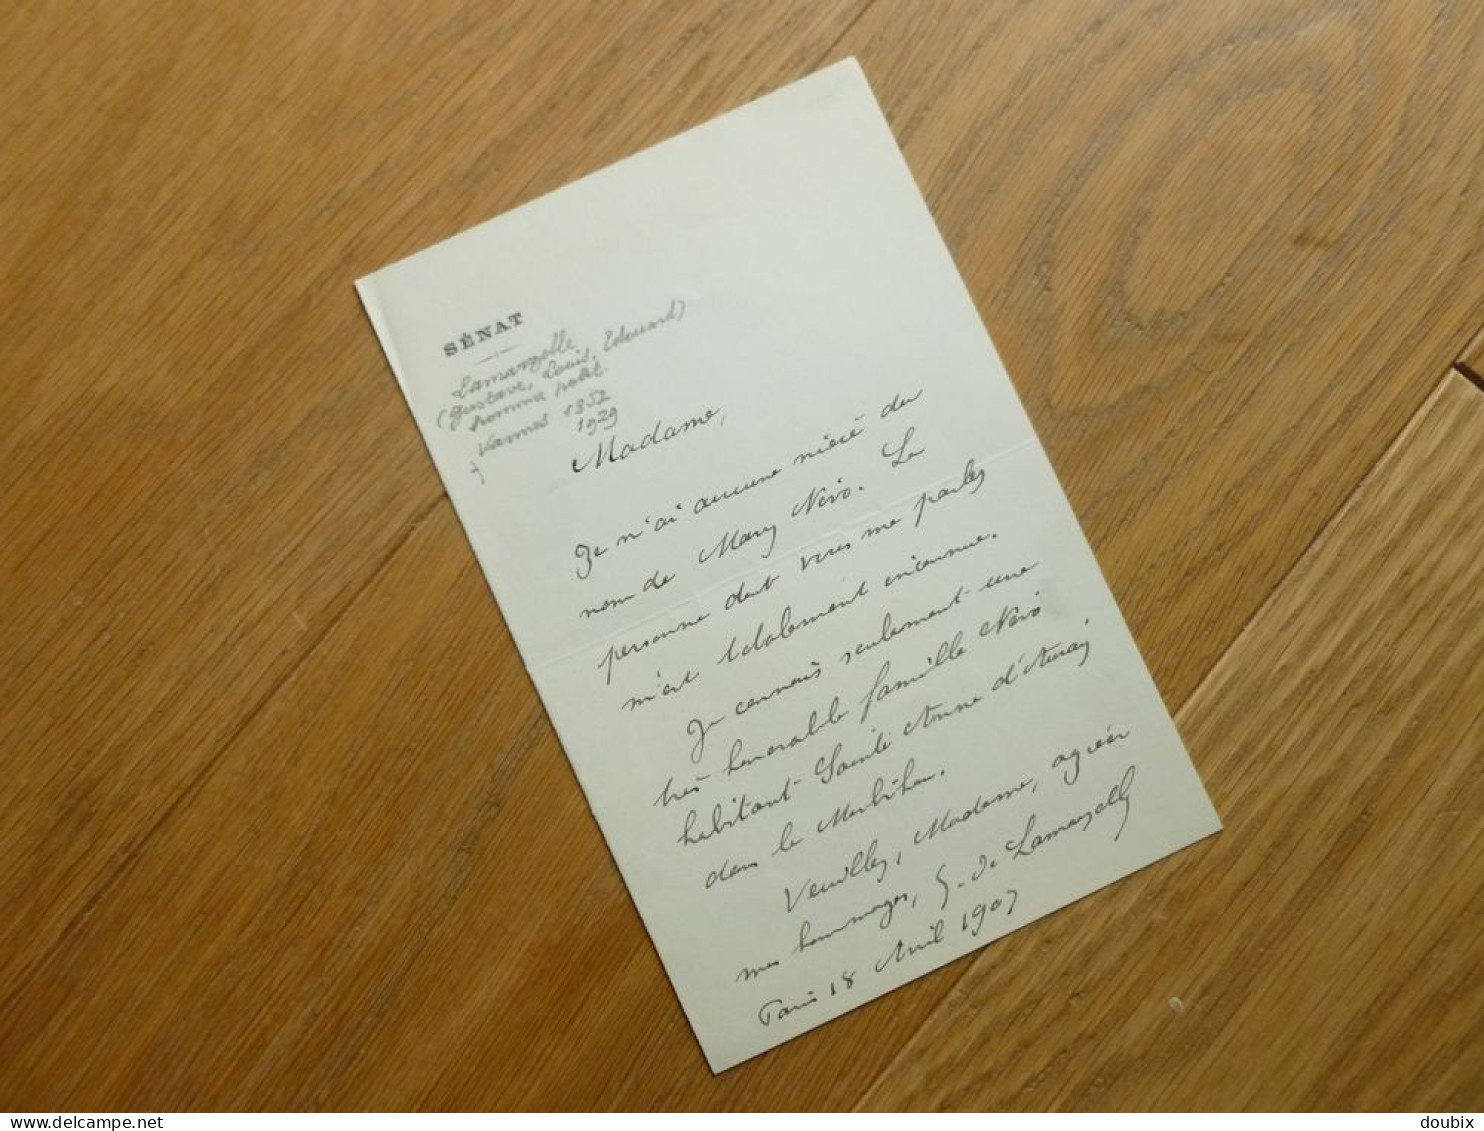 SÉNAT
Lamarzelle
(Gustave, Louis, Edouard)
homme polit.
Vannes 1852
† 1929
Madame,
Je n'ai aucune nièce du
nom de Mary Nevo. La
personne dont vous me parlez
m'est totalement inconnue.
Je connais seulement une
très honorable famille Nevo
habitant Sainte Anne d'Auray
dans le Morbihan.
Veuillez, Madame, agréer
mes hommages, G. de Lamarzelle
Paris 18 Avril 1907
delcampe.net
doubix